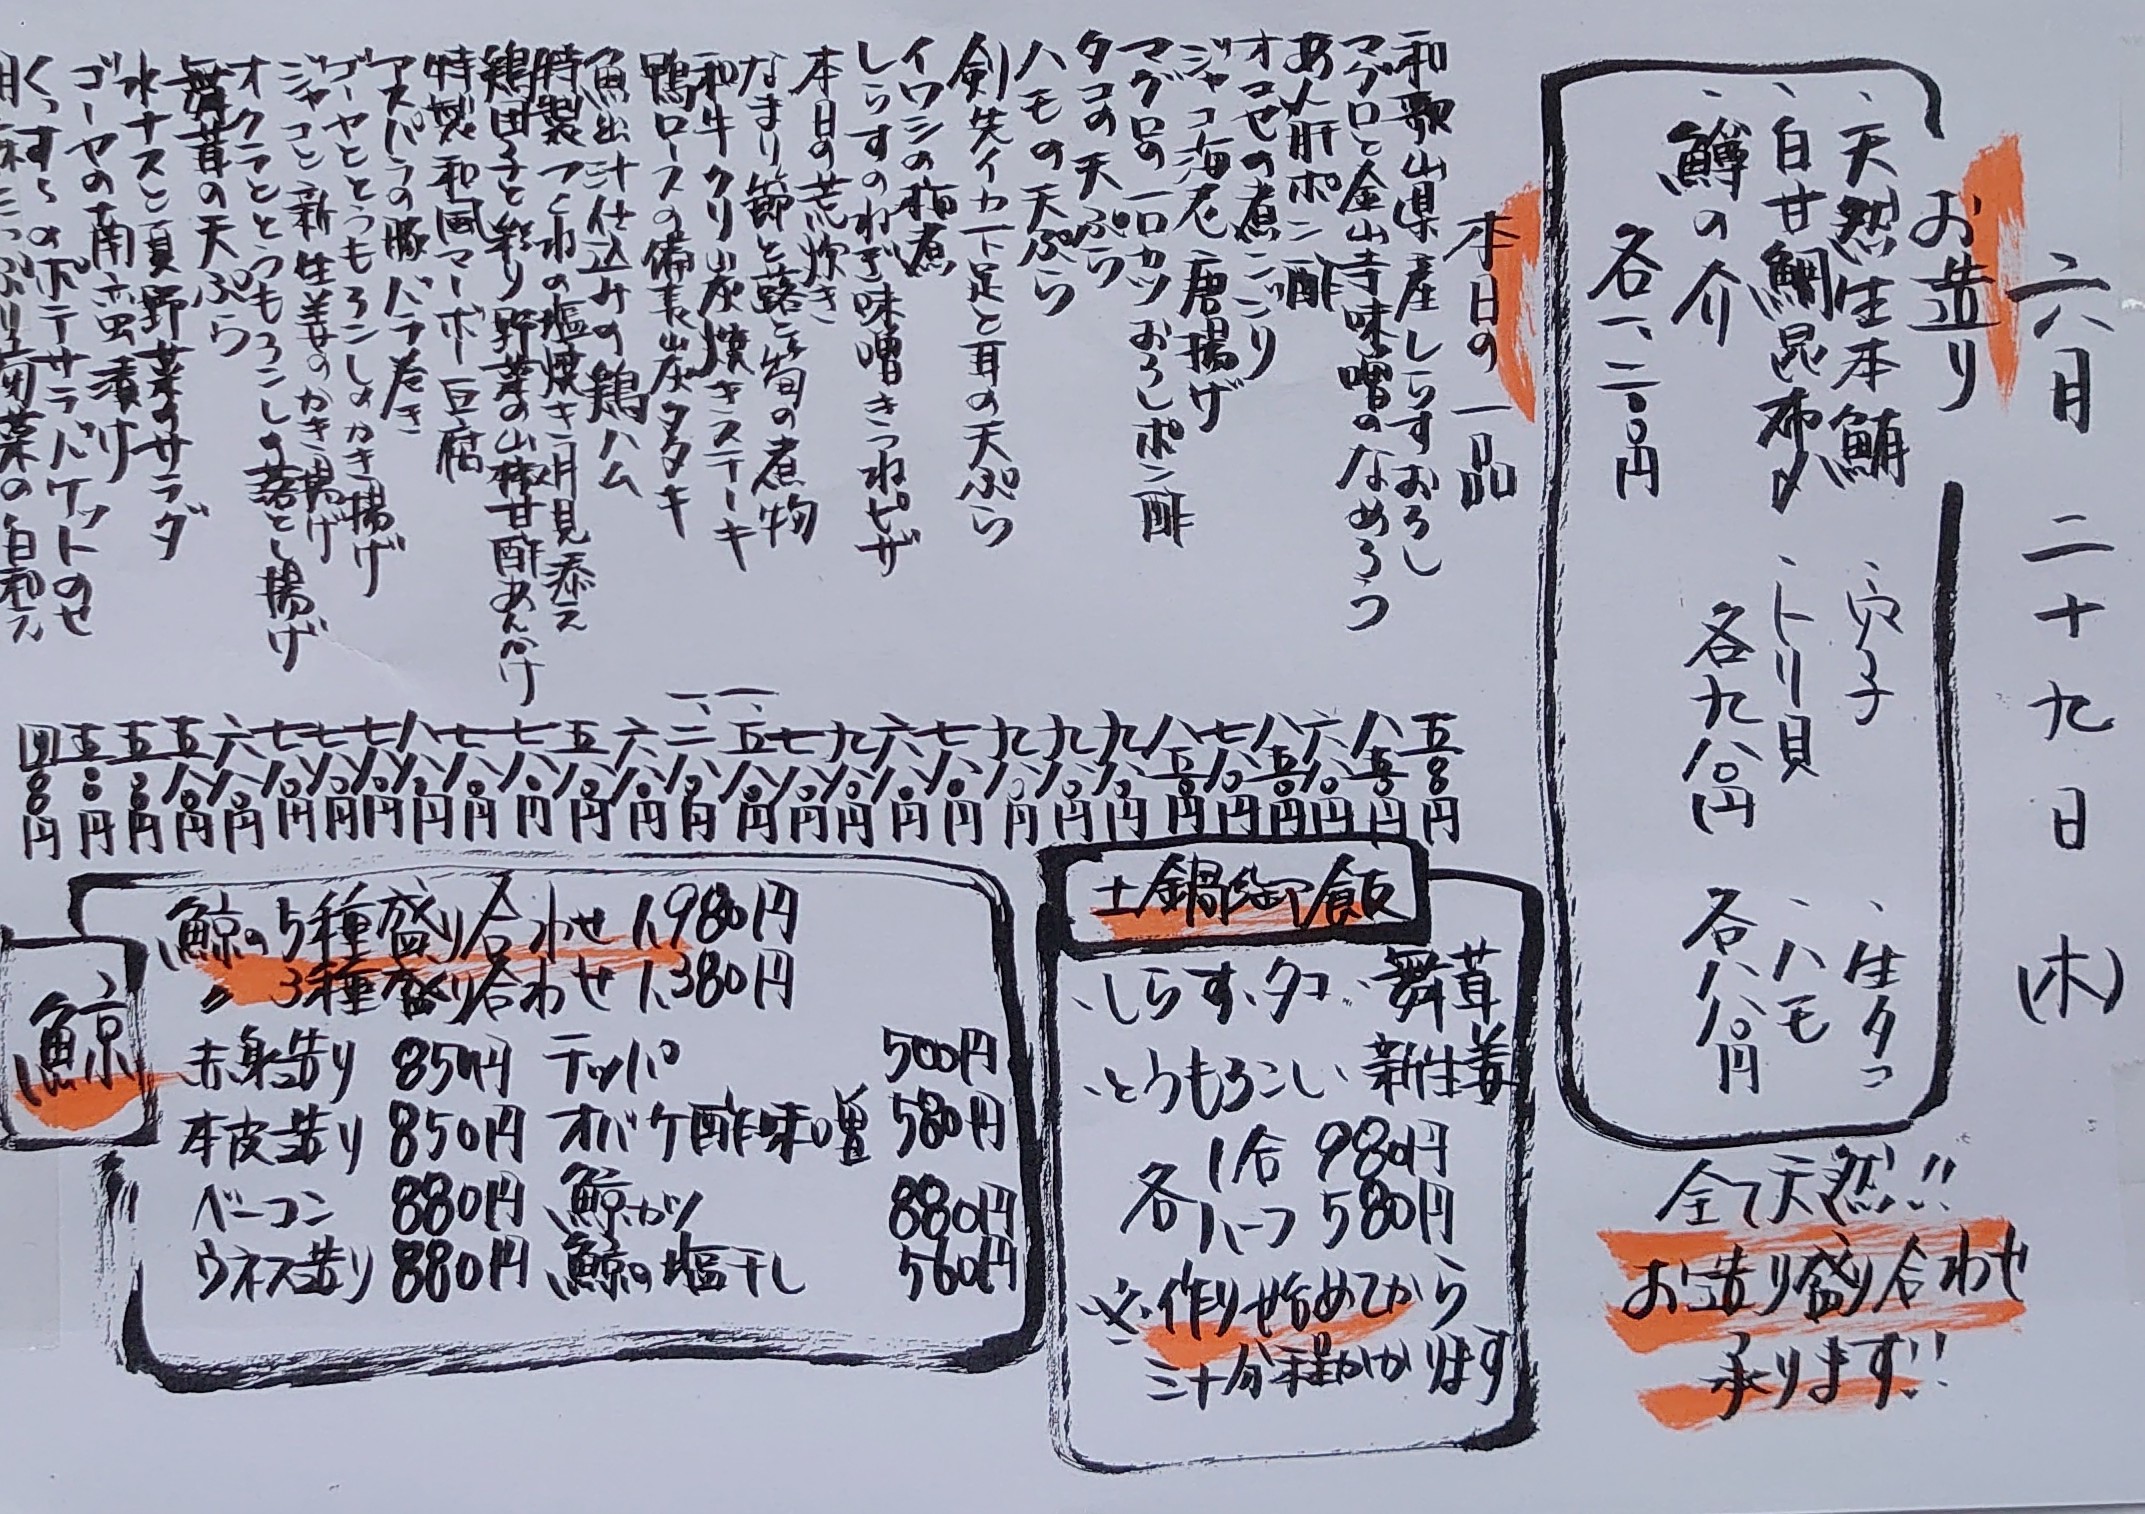 六月二十九日(木)
お造り
、天然生本鮪
、白甘鯛昆布〆
、鱒の介
各一、二〇〇円
、穴子
、トリ貝
各九八〇円
、生タコ
、ハモ
各八八〇円
全て天然!!
お造り盛り合わせ
承ります!!
本日の一品
和歌山県産しらすおろし 五八〇円
マグロと金山寺味噌のなめろう 八五〇円
あん肝ポン酢 六八〇円
オコゼの煮こごり 八五〇円
ジャコ海老唐揚げ 七八〇円
マグロの一口カツおろしポン酢 八五〇円
タコの天ぷら 九八〇円
ハモの天ぷら 九八〇円
剣先イカ下足と耳の天ぷら 九八〇円
イワシの梅煮 七八〇円
しらすのねぎ味噌きつねピザ 六八〇円
本日の荒炊き 九八〇円
なまり節と蕗と筍の煮物 七八〇円
和牛クリ炭焼きステーキ 一、五八〇円
鴨ロースの備長炭タタキ 一、二八〇円
魚出汁仕込みの鶏ハム 六八〇円
特製つくねの塩焼き月見添え 五八〇円
鶏団子と彩り野菜の山椒甘酢あんかけ 七八〇円
特製和風マーボー豆腐 七八〇円
アスパラの豚バラ巻き 八八〇円
ゴーヤととうもろこしのかき揚げ 七八〇円
ジャコと新生姜のかき揚げ 七八〇円
オクラととうもろこしの落とし揚げ 七八〇円
舞茸の天ぷら 六八〇円
水ナスと夏野菜のサラダ 五八〇円
ゴーヤの南蛮漬け 五八〇円
くっすぅのポテサラバケットのせ 五八〇円
たっぷり の白和え 四八〇円
土鍋御飯
、しらす、タコ、舞茸
、とうもろこし、新生姜
各 1合 980円
ハーフ 580円
※作り始めてから
三十分程かかります
鯨
鯨の5種盛り合わせ 1,980円
〃 3種盛り合わせ 1,380円
赤身造り 850円 テッパ 500円
本皮造り 850円 オバケ酢味噌 580円
ベーコン 880円 鯨カツ 880円
ウネス造り 880円 鯨の塩干し 560円